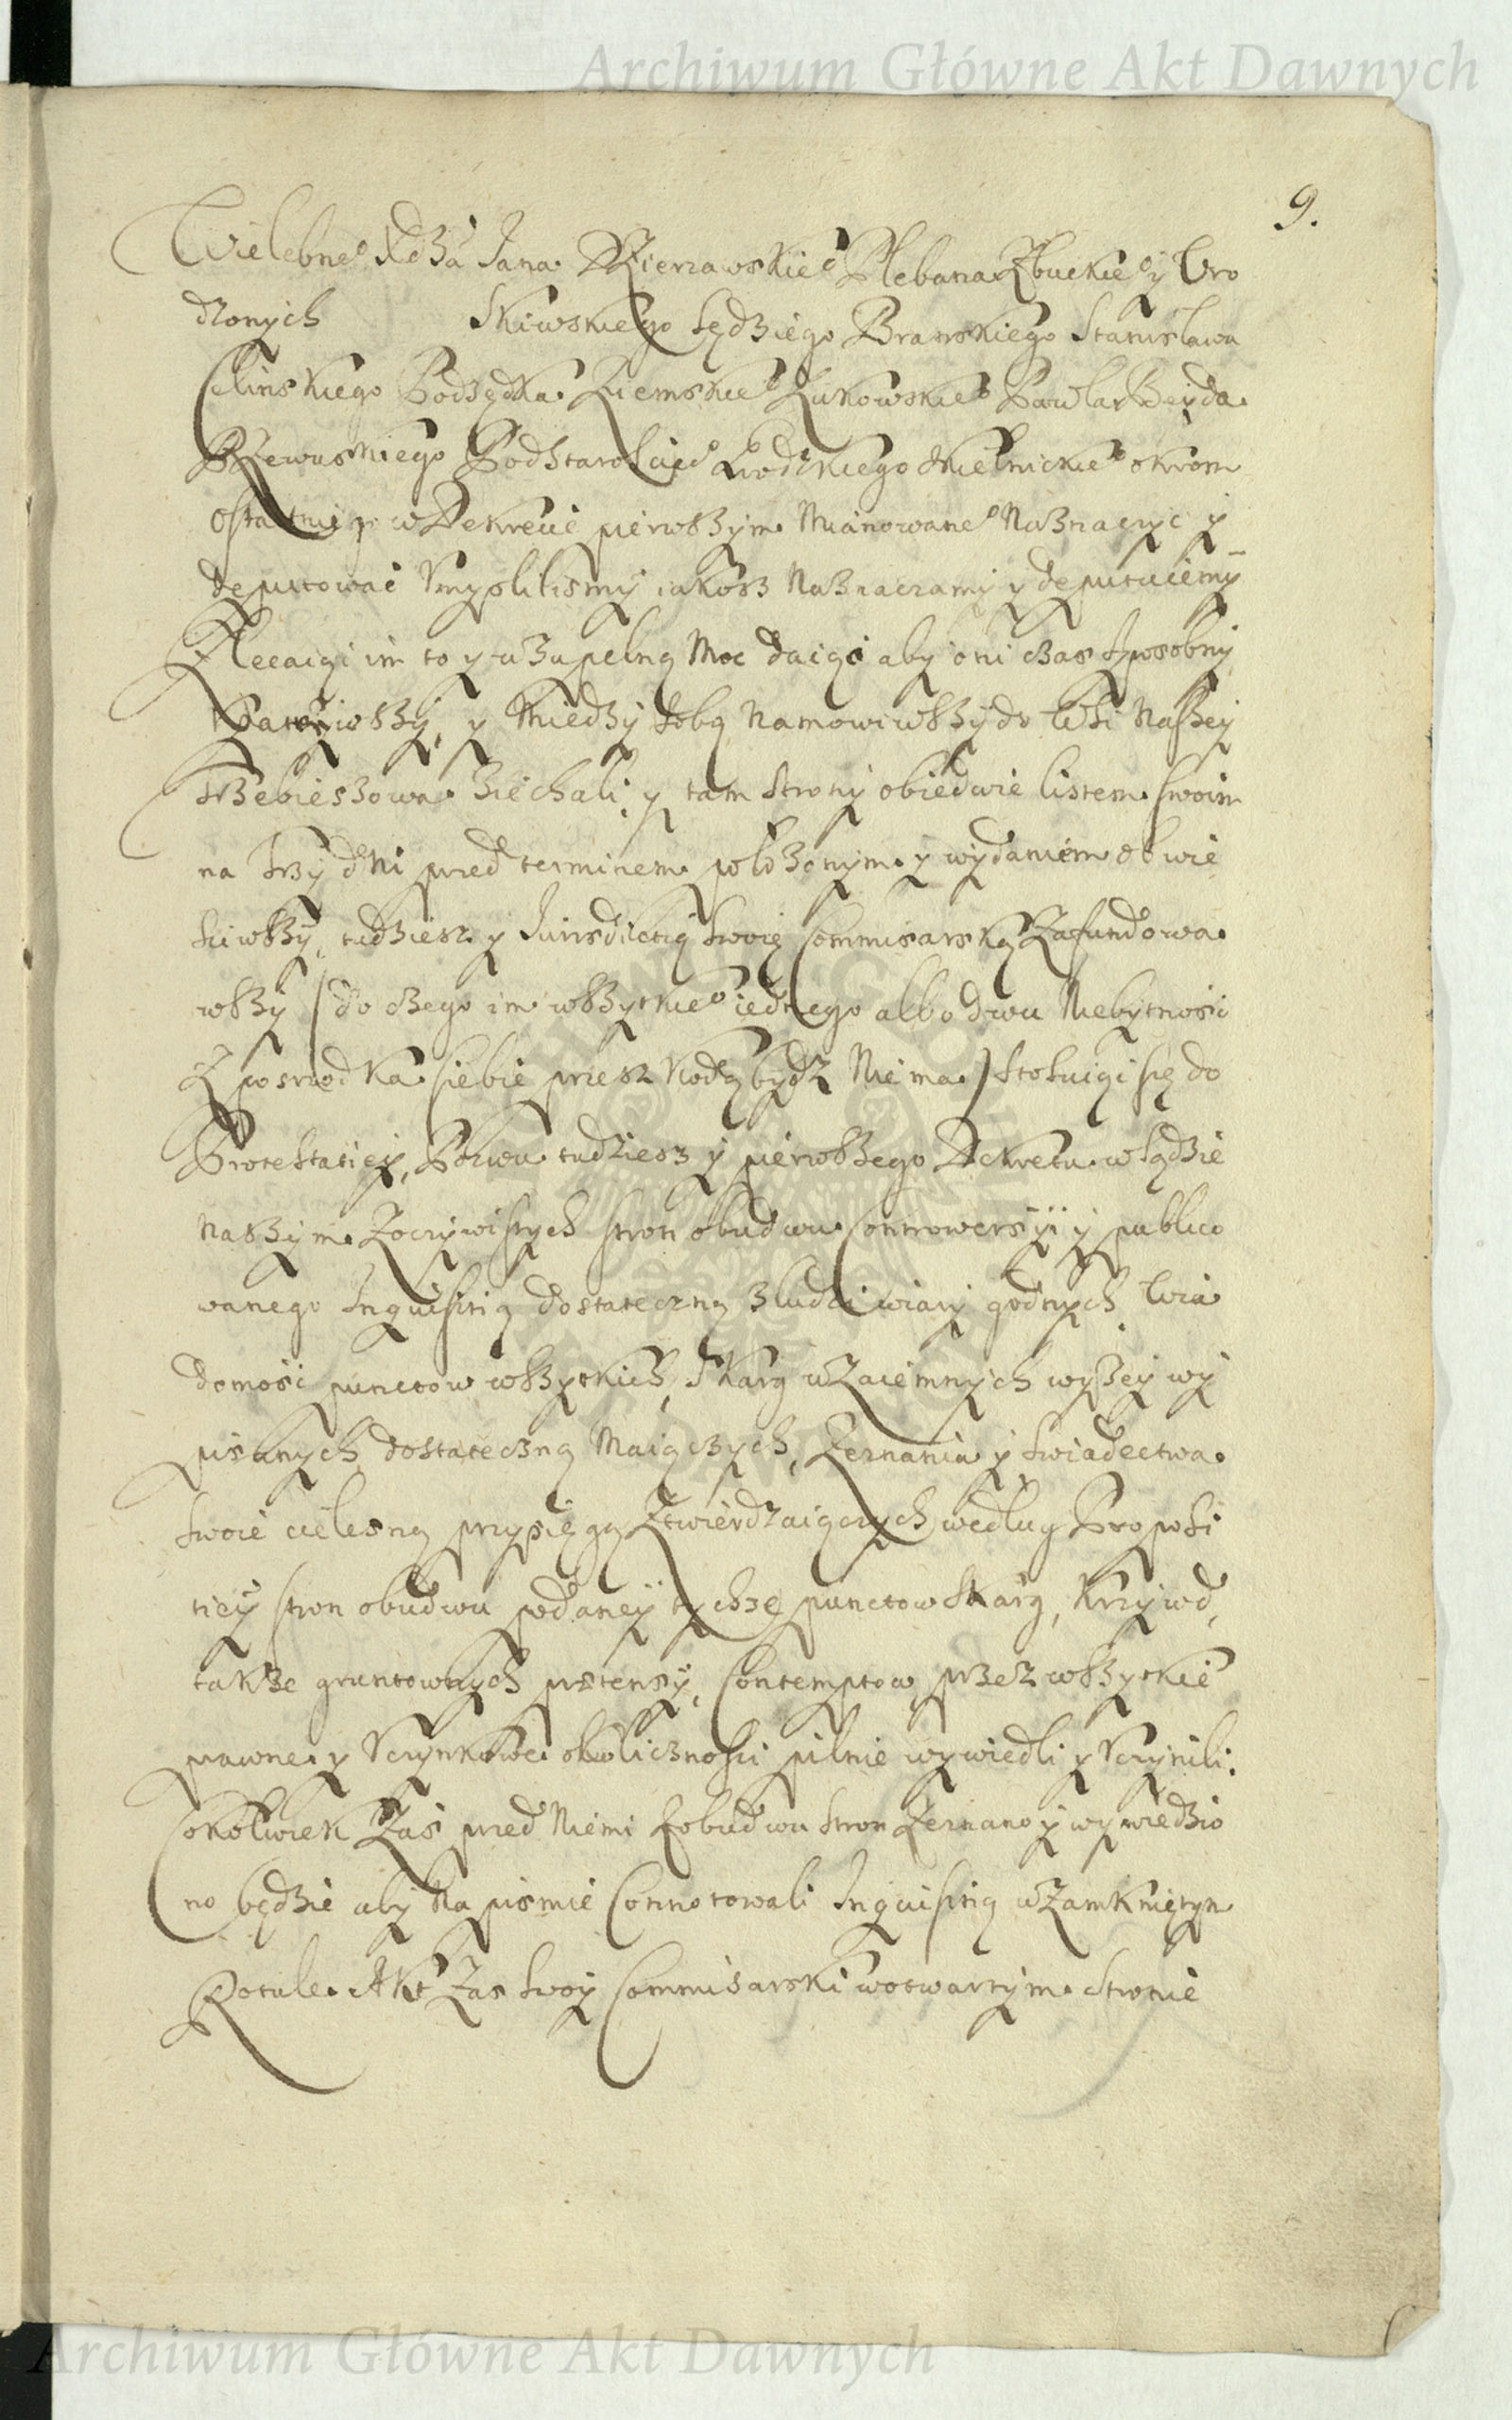 Archiwum Główne Akt Dawnych
9.
Wielebneº Xdza Jana Dzierzawskieº Plebana Zbuckieº y Vro
dzonych Skiwskiego Sędziego Branskiego Stanisława
Celinskiego Podsędka Ziemskieº Łukowskieº Pawła Beyda
Rzewuskiego Podstaroscieº Łochskiego Mielnickieº okrom
ostatniego w Dekrecie pierwszym Mianowaneº Naznaczyc y
deputowac Vmyslilismy iakosz Naznaczamy y deputuiemy
Zlecaiąc im to y zupełną Moc daiąc aby oni czas sposobny
y Miedzy sobą Namowiwszy do Wsi Naszey
Trzebieszowa Ziechali, y tam Strony obiedwie listem swoim
na Trzy dni przed terminem położonym y wydaniem obwie
sciwszy, tudziesz y Jurisdictią swoię Commisarską Zafundowa
wszy (do czego im wszytkieº iednego albo dwu Niebytnosc
Z posrzodka siebie przeszkodą bydz Nie ma) stosuiąc się do
Protestatiey, Pozwu tudziesz y pierwszego Dekretu w Sądzie
naszym Zoczywistych stron obudwu Controwersyi y publico
wanego Inquisitią dostateczną z ludzi wiary godnych, Wia
domosc punctow wszytkich, Skarg wzaiemnych wyszey wy
pisanych dostateczną Maiączych, Zeznania y swiadectwa
swoie cielesną przysięgą Ztwierdzaiączych według Proposi
ticy stron obudwu podaney tychze punctow Skarg, Krzywd,
takze gruntownych pretensy, Contemptow, przez wszytkie
prawne y Vczynkowe okolicznosci pilnie wywiedli y Vczynili.
Cokolwiek Zas przed Niemi Zobudwu stron Zeznano y wywiedzio
no będzie aby Na pismie Connotowali Inquisitią w Zamkniętym
Rotule Akt Zas swoy Commisarski wotwartym Stronie
Archiwum Główne Akt Dawnych